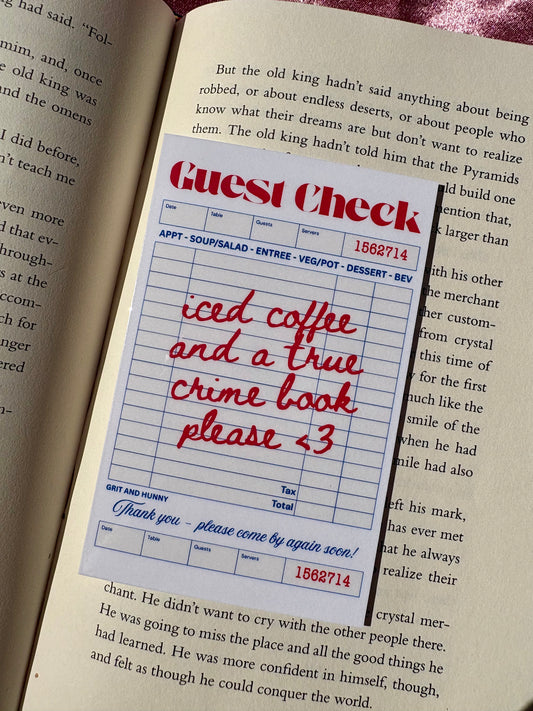 ng had said. "Fol-
mim, and, once
e old king was
and the omens
I did before,
n't teach me
even more
d that ev-
hrough-
s at the
ccom-
ch for
nger
ered
But the old king hadn't said anything about being
robbed, or about endless deserts, or about people who
know what their dreams are but don't want to realize
them. The old king hadn't told him that the Pyramids
ld build one
ention that,
k larger than
Guest Check
Date Table Guests Servers 1562714
APPT - SOUP/SALAD - ENTREE - VEG/POT - DESSERT - BEV
iced coffee
and a true
crime book
please <3
Tax
Total
GRIT AND HUNNY
Thank you - please come by again soon!
Date Table Guests Servers 1562714
with his other
the merchant
her custom-
from crystal
this time of
y for the first
much like the
smile of the
when he had
mile had also
eft his mark,
has ever met
hat he always
realize their
crystal mer-
chant. He didn't want to cry with the other people there.
He was going to miss the place and all the good things he
had learned. He was more confident in himself, though,
and felt as though he could conquer the world.